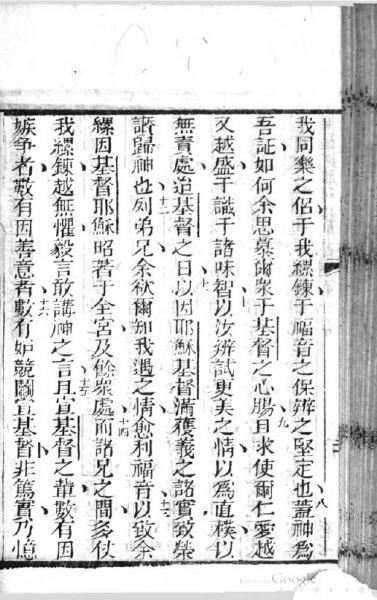 我同樂之侶于我縲錬于福音之保辨之堅定也蓋神為
八
吾証如何余思慕爾衆于基督之心腸且求使爾仁愛越
九
又越盛于識于諸味智以汝辨試更美之情以爲直樸以
十
無責處迨基督之日以因耶穌基督滿獲義之諸實致榮
十一
讃歸神也列弟兄余欲爾知我遇之情愈利福音以致余
十二
十三
縲因基督耶穌昭著于全宮及餘衆處而諸兄之間多仗
十四
我縲錬越無懼毅言敢講神之言且宣基督之輩數有因
十五
嫉争者數有因善意者數有妒競鬬宣基督非篤實乃憶
十六
Google